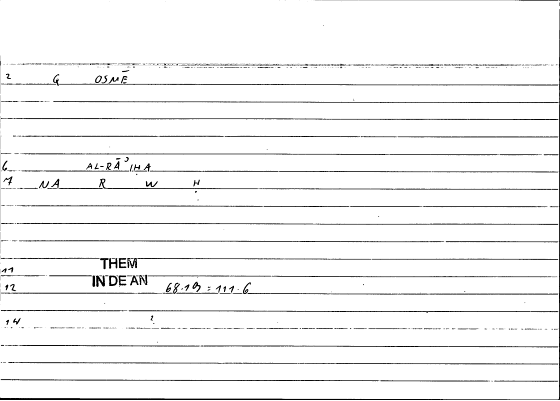 2 G OSMĒ
6 AL-RĀʾIḤA
7 NA R W Ḥ
11 THEM
IN DE AN
12 68.19 = 111.6
14 ?